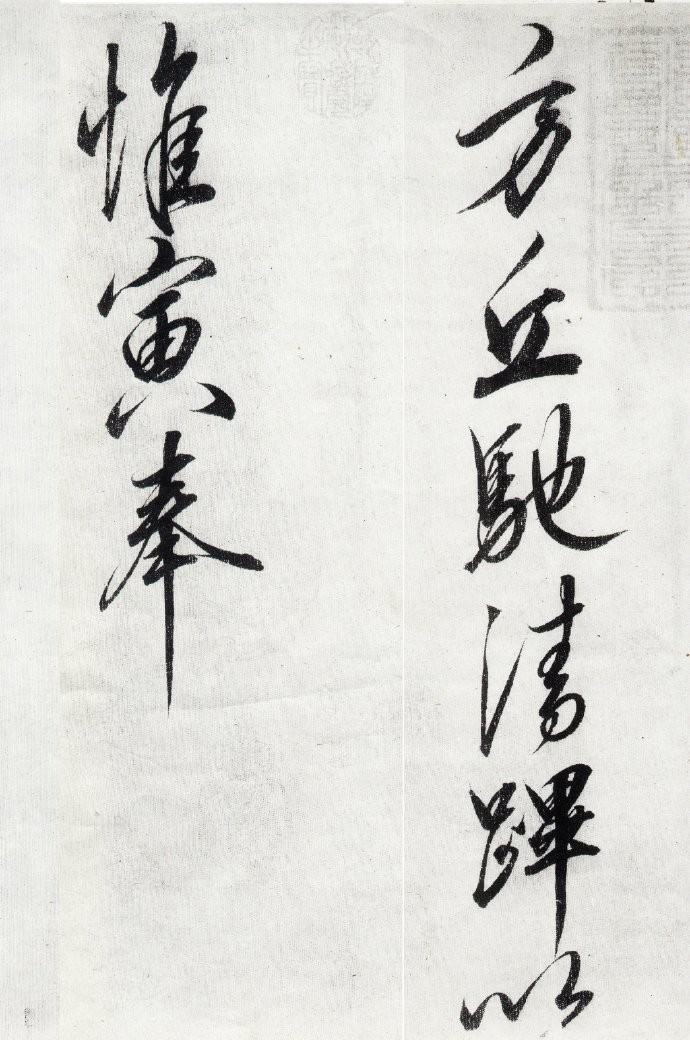 方丘馳清蹕以
惟寅奉